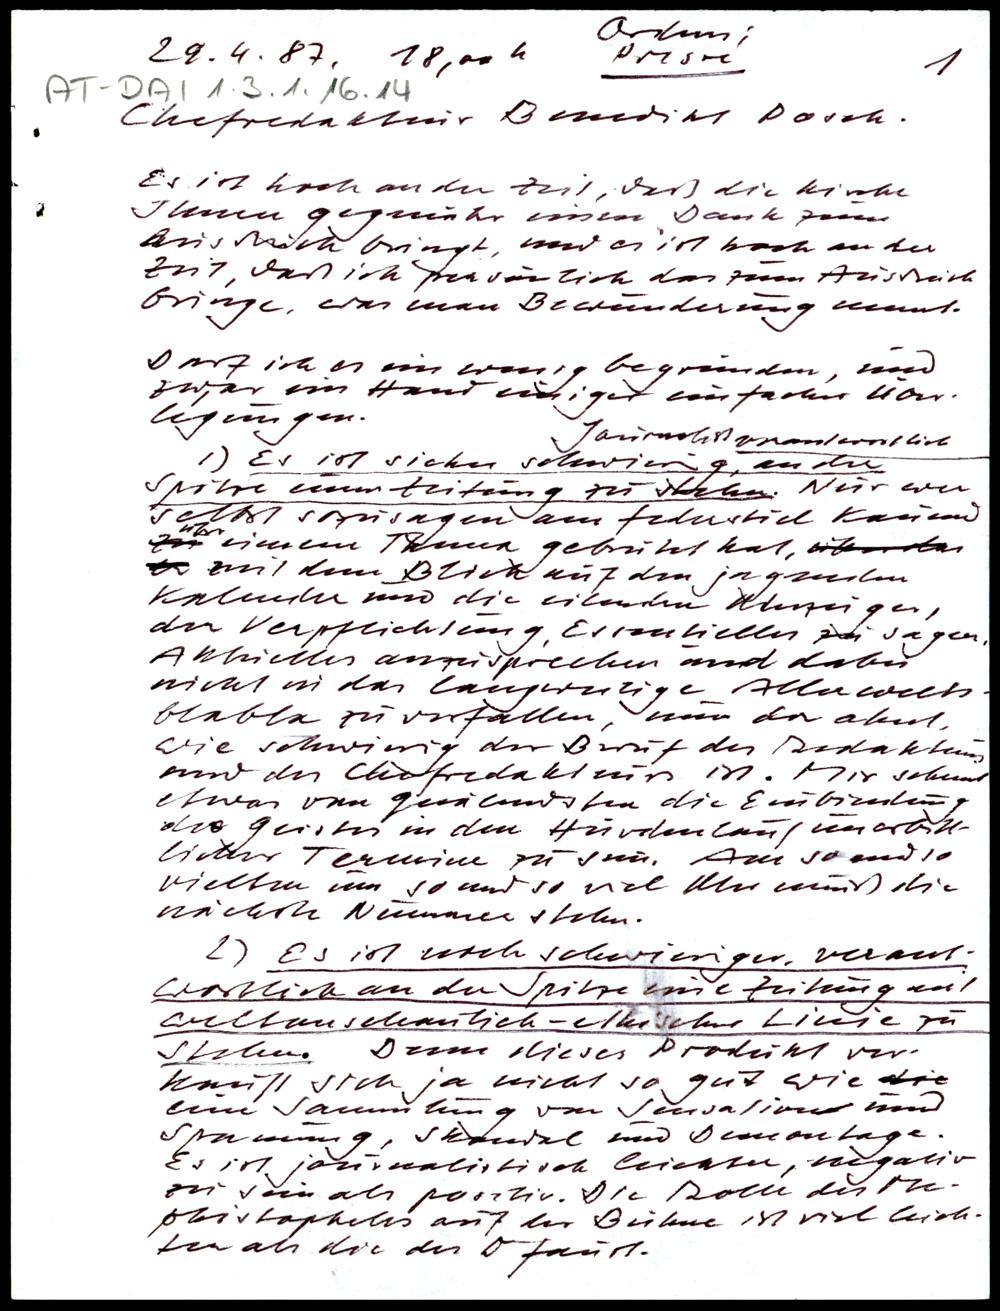 29.4.87. 18,00 h Orden;
Presse 1
AT-DAI 1.3.1.16.14
Chefredakteur Benedikt Posch.
Es ist hoch an der Zeit, daß die Kirche
Ihnen gegenüber einen Dank zum
Ausdruck bringt, und es ist hoch an der
Zeit, daß ich persönlich das zum Ausdruck
bringe, was man Bewunderung nennt.
Darf ich es ein wenig begründen, und
zwar an Hand einiger einfacher Über-
legungen.
Journalist verantwortlich
1) Es ist sicher schwierig, an der
Spitze einer Zeitung zu stehen. Nur wer
selbst sozusagen am Federstiel kauend
über einem Thema gebrütet hat,
mit dem Blick auf den jagenden
Kalender und die eilenden Uhrzeiger,
der Verpflichtung, Essentielles zu sagen,
Aktuelles anzusprechen und dabei
nicht in das langweilige Allerwelts-
blabla zu verfallen, nur der ahnt,
wie schwierig der Beruf des Redakteurs
und des Chefredakteurs ist. Mir scheint
etwas vom Quälendsten die Einbindung
des Geistes in den Hürdenlauf unerbitt-
licher Termine zu sein. Am soundso
vielten um so und so viel Uhr muß die
nächste Nummer stehn.
2) Es ist noch schwieriger, verant-
wortlich an der Spitze einer Zeitung mit
weltanschaulich-ethischer Linie zu
stehen. Denn dieses Produkt ver-
kauft sich ja nicht so gut wie die
eine Sammlung von Sensation und
Spannung, Skandal und Demontage.
Es ist journalistisch leichter, negativ
zu sein als positiv. Die Rolle des Me-
phistopheles auf der Bühne ist viel leich-
ter als die des D Faust.